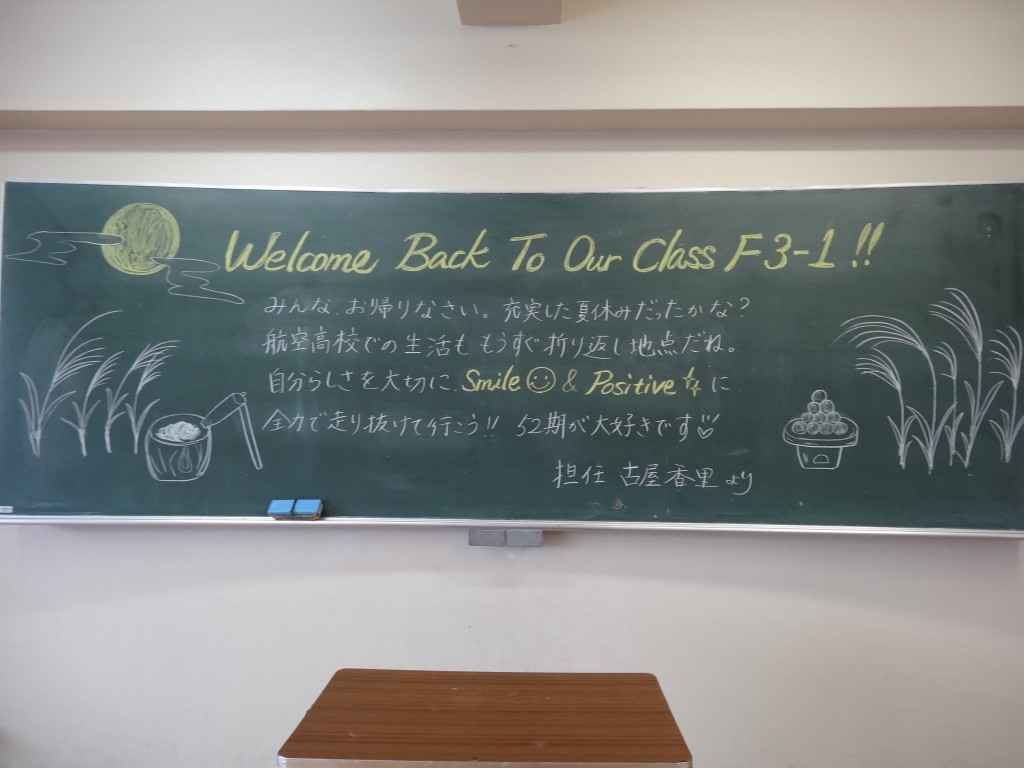 Welcome Back To Our Class F3-1!!
みんな、お帰りなさい。充実した夏休みだったかな?
航空高校での生活も もうすぐ折り返し地点だね。
自分らしさを大切に、Smile☺ & Positive☆に
全力で走り抜けて行こう!! 52期が大好きです♡
担任 古屋香里より